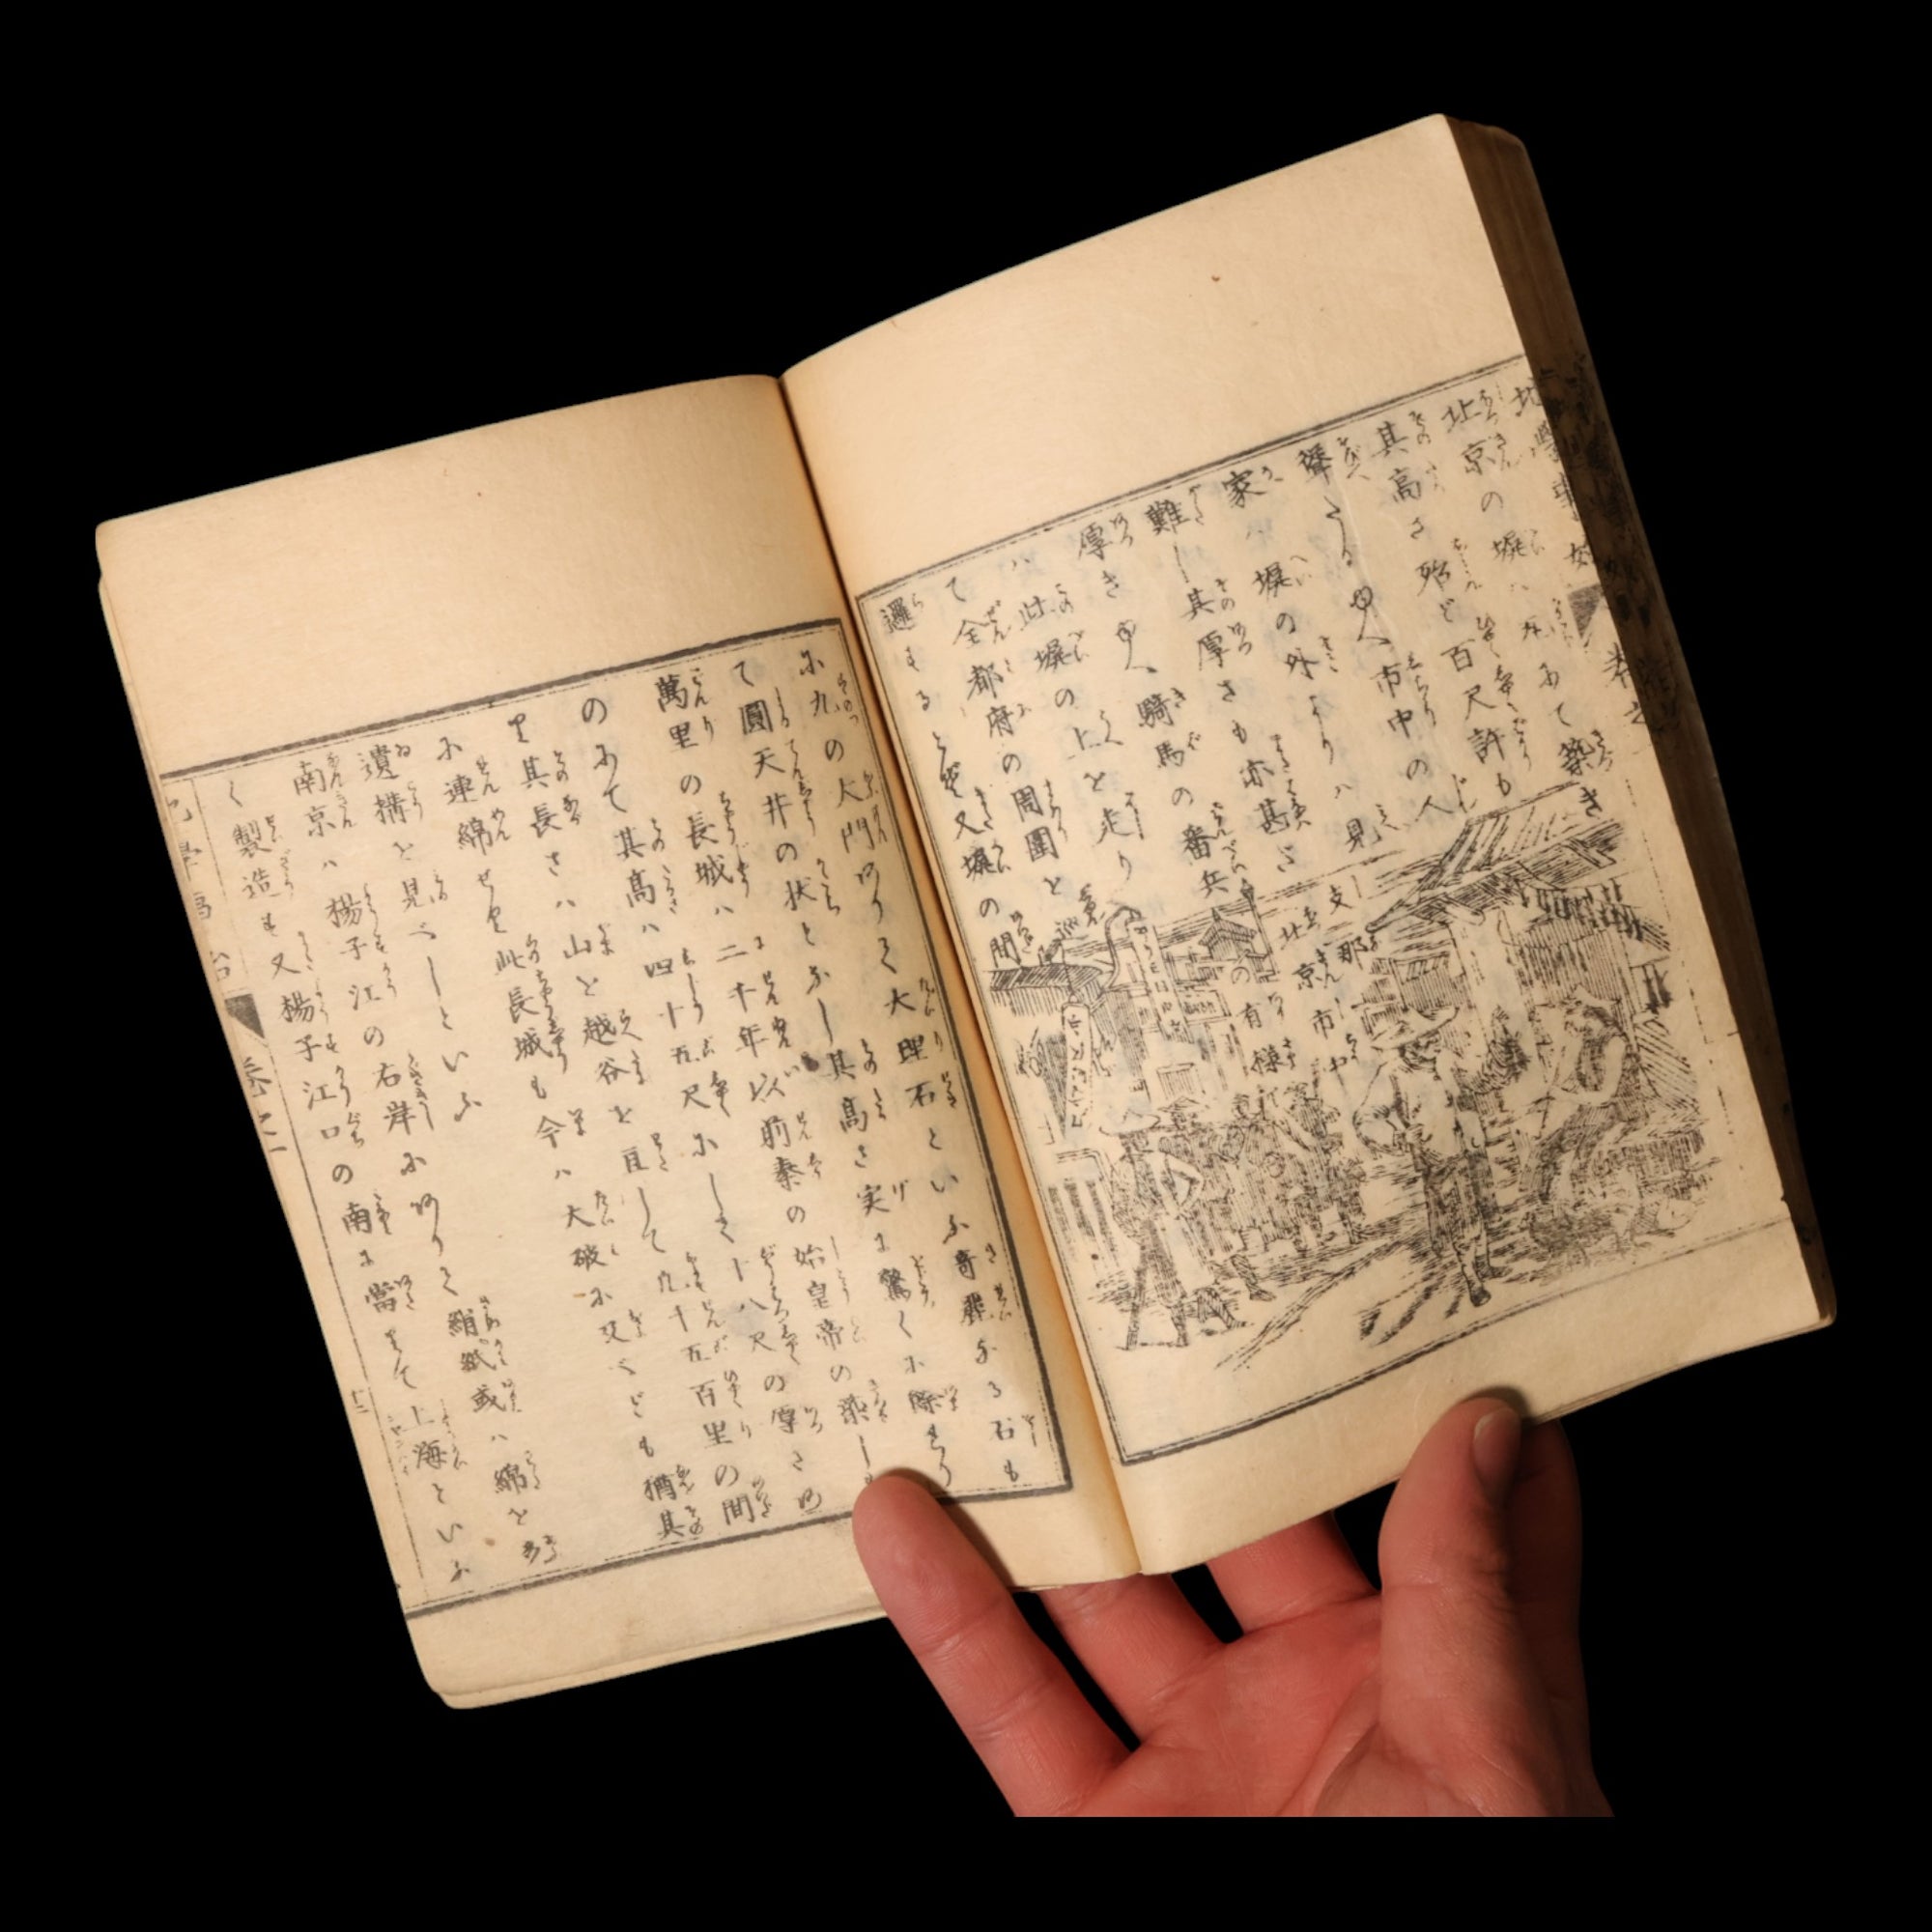 地學事始 巻之
北京の塀ハ石にて築き
其高さ殆ど百尺許も
聳えたるゆへ市中の人
家ハ塀の外よりハ見え
難し其厚さも亦甚だ
厚きゆへ騎馬の番兵
ハ此塀の上を走り
て全都府の周圍を警
邏するとぞ又塀の間
支那
北京市中
の有様
に九の大門ありて大理石といふ奇麗なる石も
て圓天井の状となし其高さ実に驚くに餘れり
萬里の長城ハ二千年以前秦の始皇帝の築し
のにて其高ハ四十五尺にして十八尺の厚さあ
り其長さハ山を越谷を亘して九十五百里の間
に連綿せり此長城も今ハ大破に及べども猶其
遺構を見べしといふ
南京ハ揚子江の右岸にありて絹紙或ハ綿を多
く製造す又揚子江口の南に當りて上海といふ
巻之二
十二